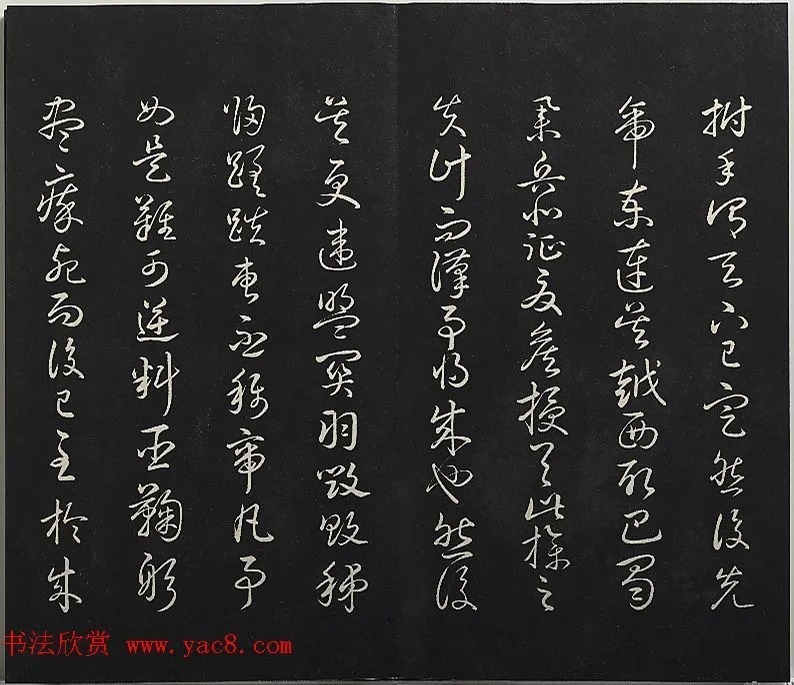 拊手謂天下已定然後先
帝東連吳越西取巴蜀
舉兵北征夏侯授首此操之
失計而漢事將成也然後
吳更違盟關羽毀敗秭
歸蹉跌曹丕稱帝凡事
如是難可逆料臣鞠躬
盡瘁死而後已至於成
书法欣赏 www.yac8.com